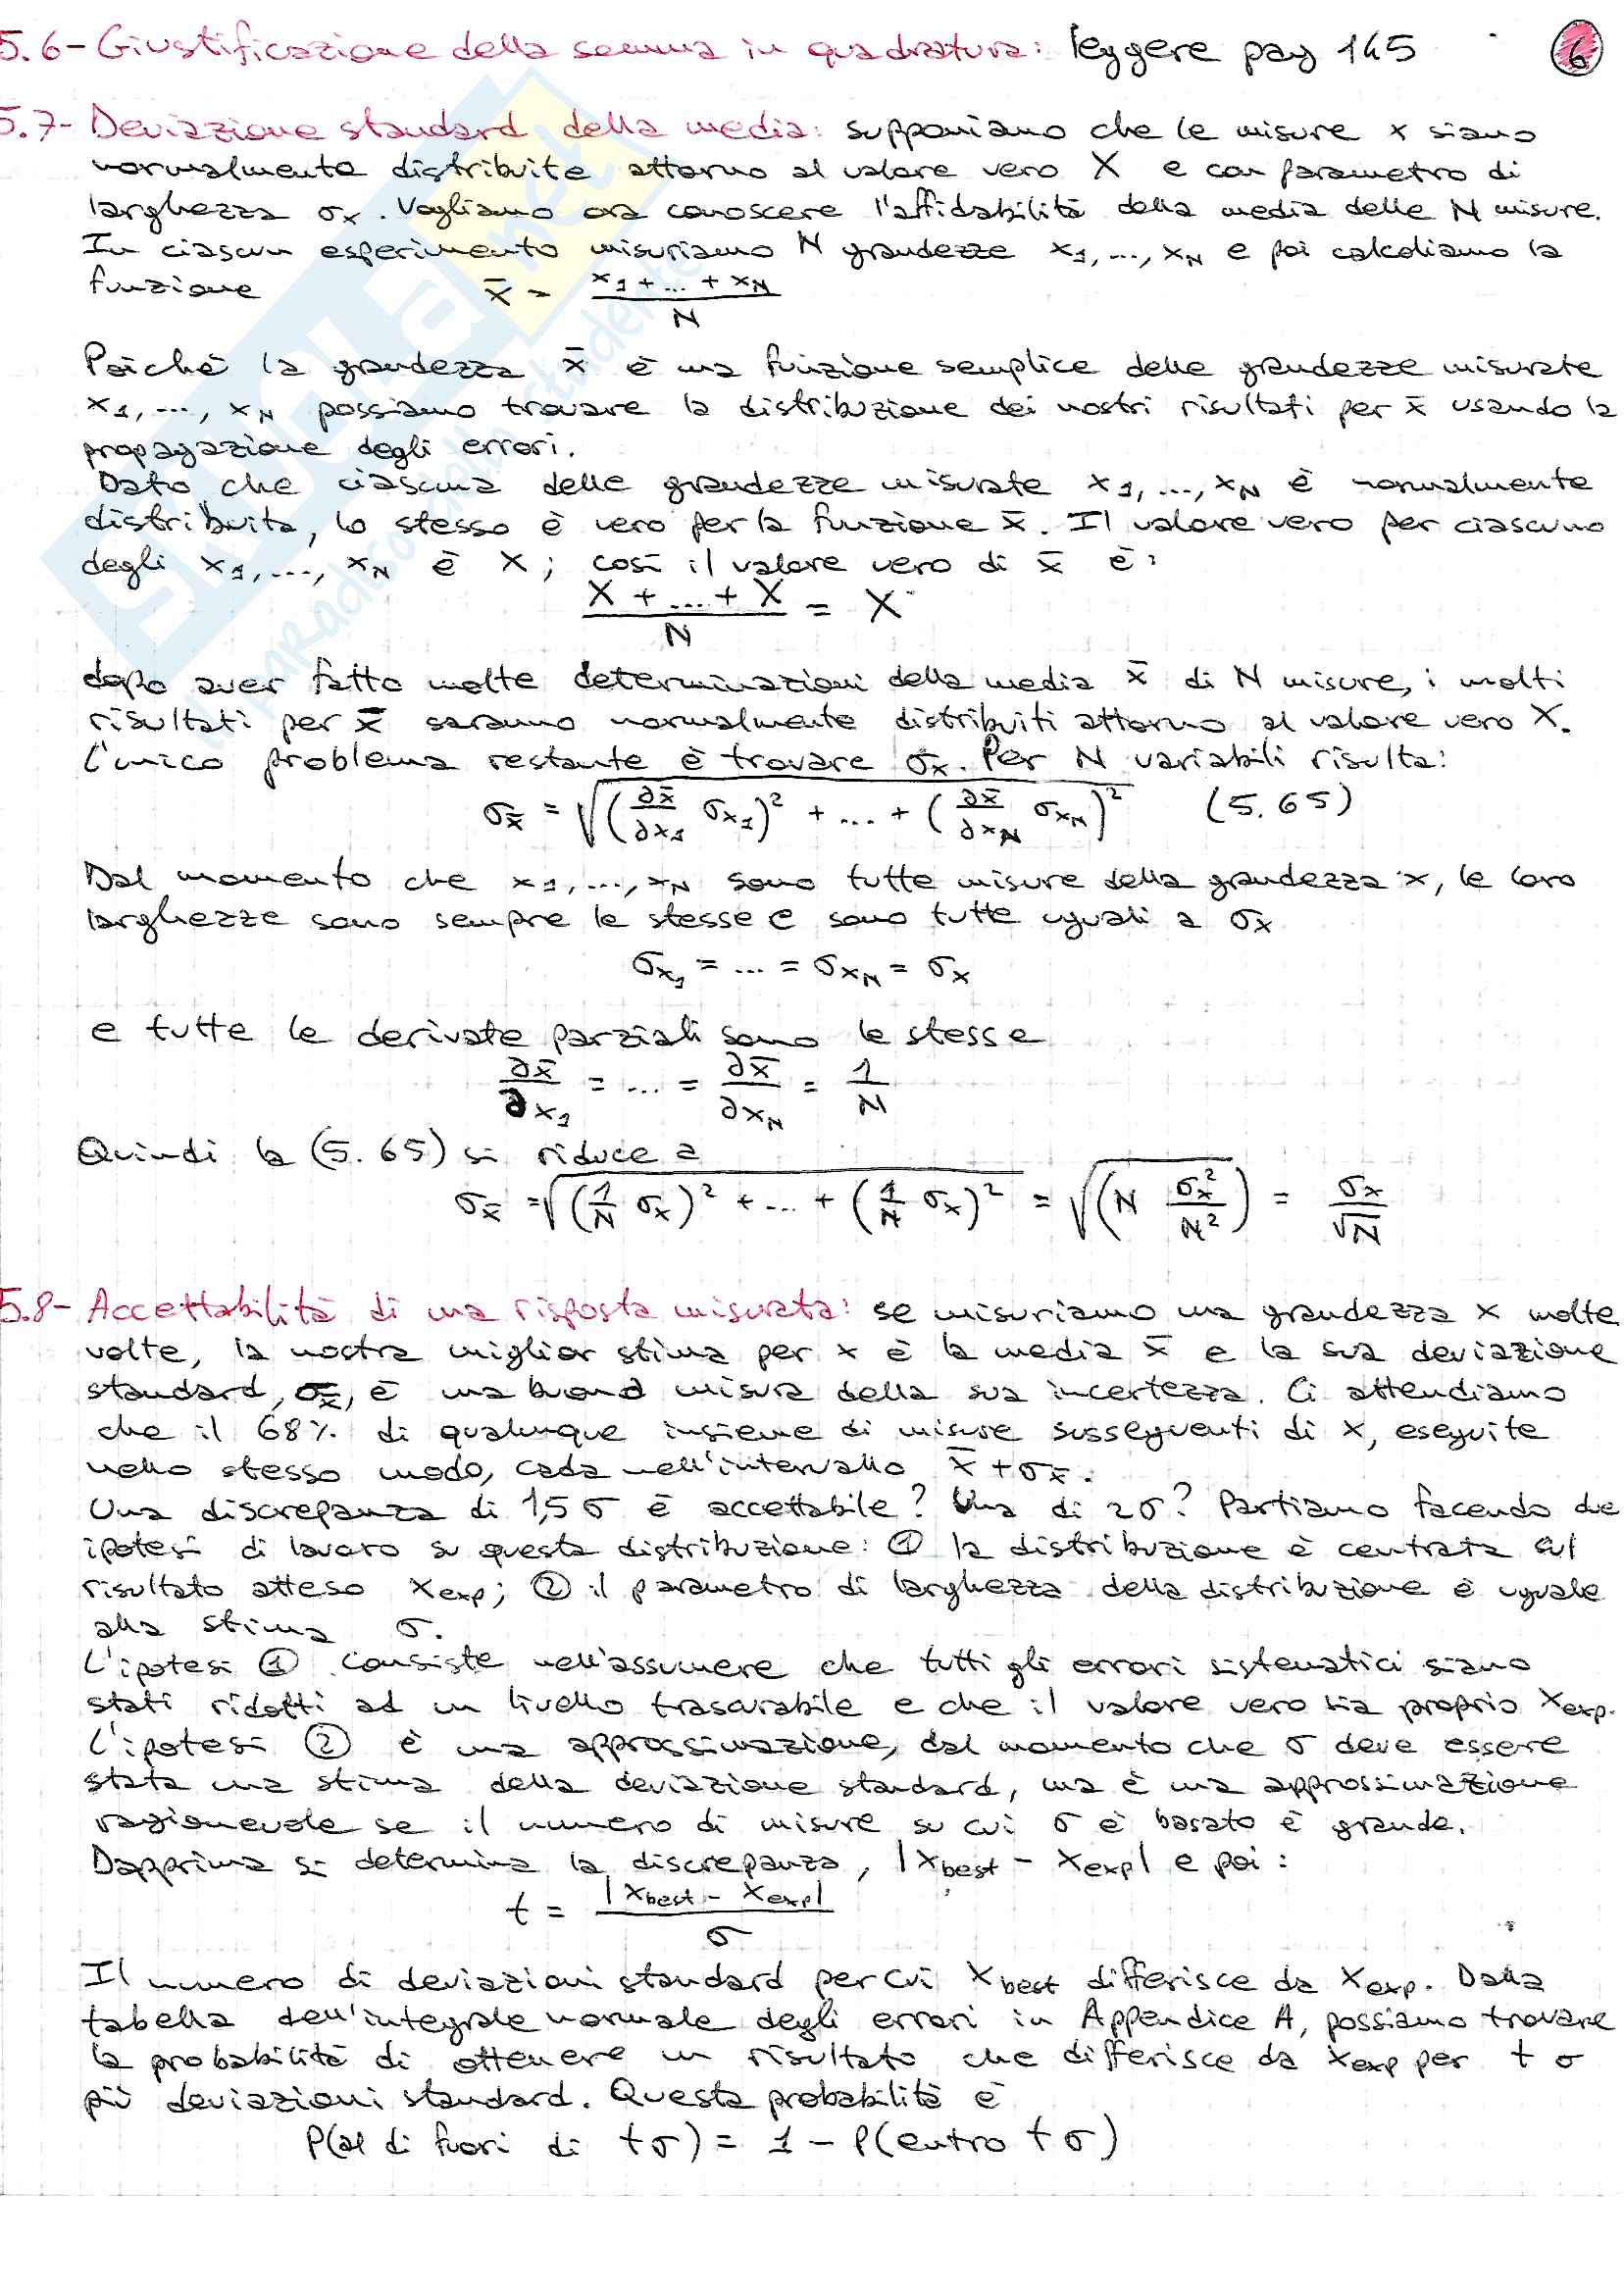 5.6- Giustificazione della somma in quadratura: leggere pag 145
6
5.7- Deviazione standard della media: supponiamo che le misure x siano
normalmente distribuite attorno al valore vero X e con parametro di
larghezza σx. Vogliamo ora conoscere l'affidabilità della media delle N misure.
In ciascun esperimento misuriamo N grandezze x1,...,xN e poi calcoliamo la
funzione x̄ = (x1+...+xN)/N
Poiché la grandezza x̄ è una funzione semplice delle grandezze misurate
x1,...,xN possiamo trovare la distribuzione dei nostri risultati per x̄ usando la
propagazione degli errori.
Dato che ciascuna delle grandezze misurate x1,...,xN è normalmente
distribuita, lo stesso è vero per la funzione x̄. Il valore vero per ciascuno
degli x1,...,xN è X; così il valore vero di x̄ è:
(X+...+X)/N = X
dopo aver fatto molte determinazioni della media x̄ di N misure, i molti
risultati per x̄ saranno normalmente distribuiti attorno al valore vero X.
L'unico problema restante è trovare σx̄. Per N variabili risulta:
σx̄ = √((∂x̄/∂x1 σx1)² + ... + (∂x̄/∂xN σxN)²) (5.65)
Dal momento che x1,...,xN sono tutte misure della grandezza x, le loro
larghezze sono sempre le stesse e sono tutte uguali a σx
σx1 = ... = σxN = σx
e tutte le derivate parziali sono le stesse
∂x̄/∂x1 = ... = ∂x̄/∂xN = 1/N
Quindi la (5.65) si riduce a
σx̄ = √((1/N σx)² + ... + (1/N σx)²) = √(N σx²/N²) = σx/√N
5.8- Accettabilità di una risposta misurata: se misuriamo una grandezza x molte
volte, la nostra miglior stima per x è la media x̄ e la sua deviazione
standard, σx̄, è una buona misura della sua incertezza. Ci attendiamo
che il 68% di qualunque insieme di misure susseguenti di x, eseguite
nello stesso modo, cada nell'intervallo x̄ + σx̄.
Una discrepanza di 1,5 σ è accettabile? Una di 2σ? Partiamo facendo due
ipotesi di lavoro su questa distribuzione: ① la distribuzione è centrata sul
risultato atteso xexp; ② il parametro di larghezza della distribuzione è uguale
alla stima σ.
L'ipotesi ① consiste nell'assumere che tutti gli errori sistematici siano
stati ridotti ad un livello trascurabile e che il valore vero sia proprio xexp.
L'ipotesi ② è una approssimazione, dal momento che σ deve essere
stata una stima della deviazione standard, ma è una approssimazione
ragionevole se il numero di misure su cui σ è basato è grande.
Dapprima si determina la discrepanza, |xbest - xexp| e poi:
t = |xbest - xexp|/σ
Il numero di deviazioni standard per cui xbest differisce da xexp. Dalla
tabella dell'integrale normale degli errori in Appendice A, possiamo trovare
la probabilità di ottenere un risultato che differisce da xexp per t o
più deviazioni standard. Questa probabilità è
P(al di fuori di tσ) = 1 - P(entro tσ)